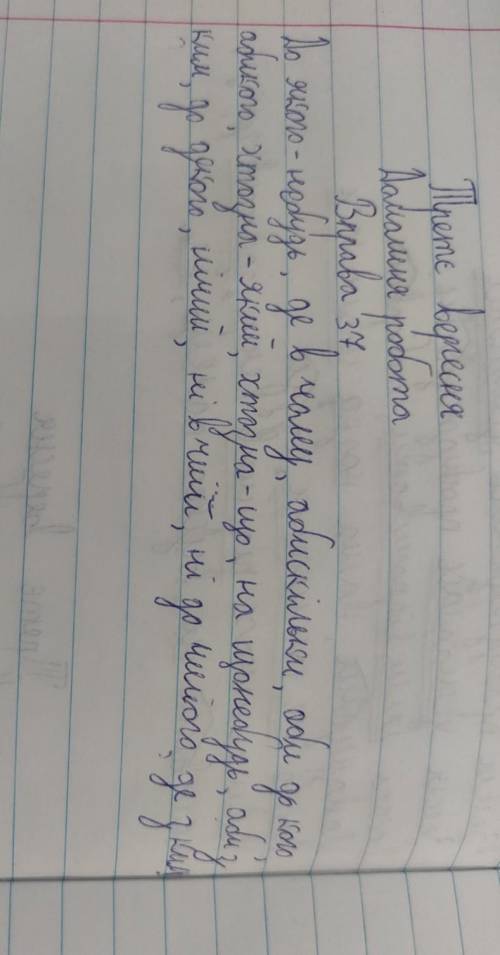 Третє вересня
Домашня робота
Вправа 37
До якого-небудь, де в чому, абискільки, аби до кого,
абикого, хтозна-який, хтозна-що, на щонебудь, аби з
ким, до декого, нічий, ні в чиїй, ні до чийого, де з ким